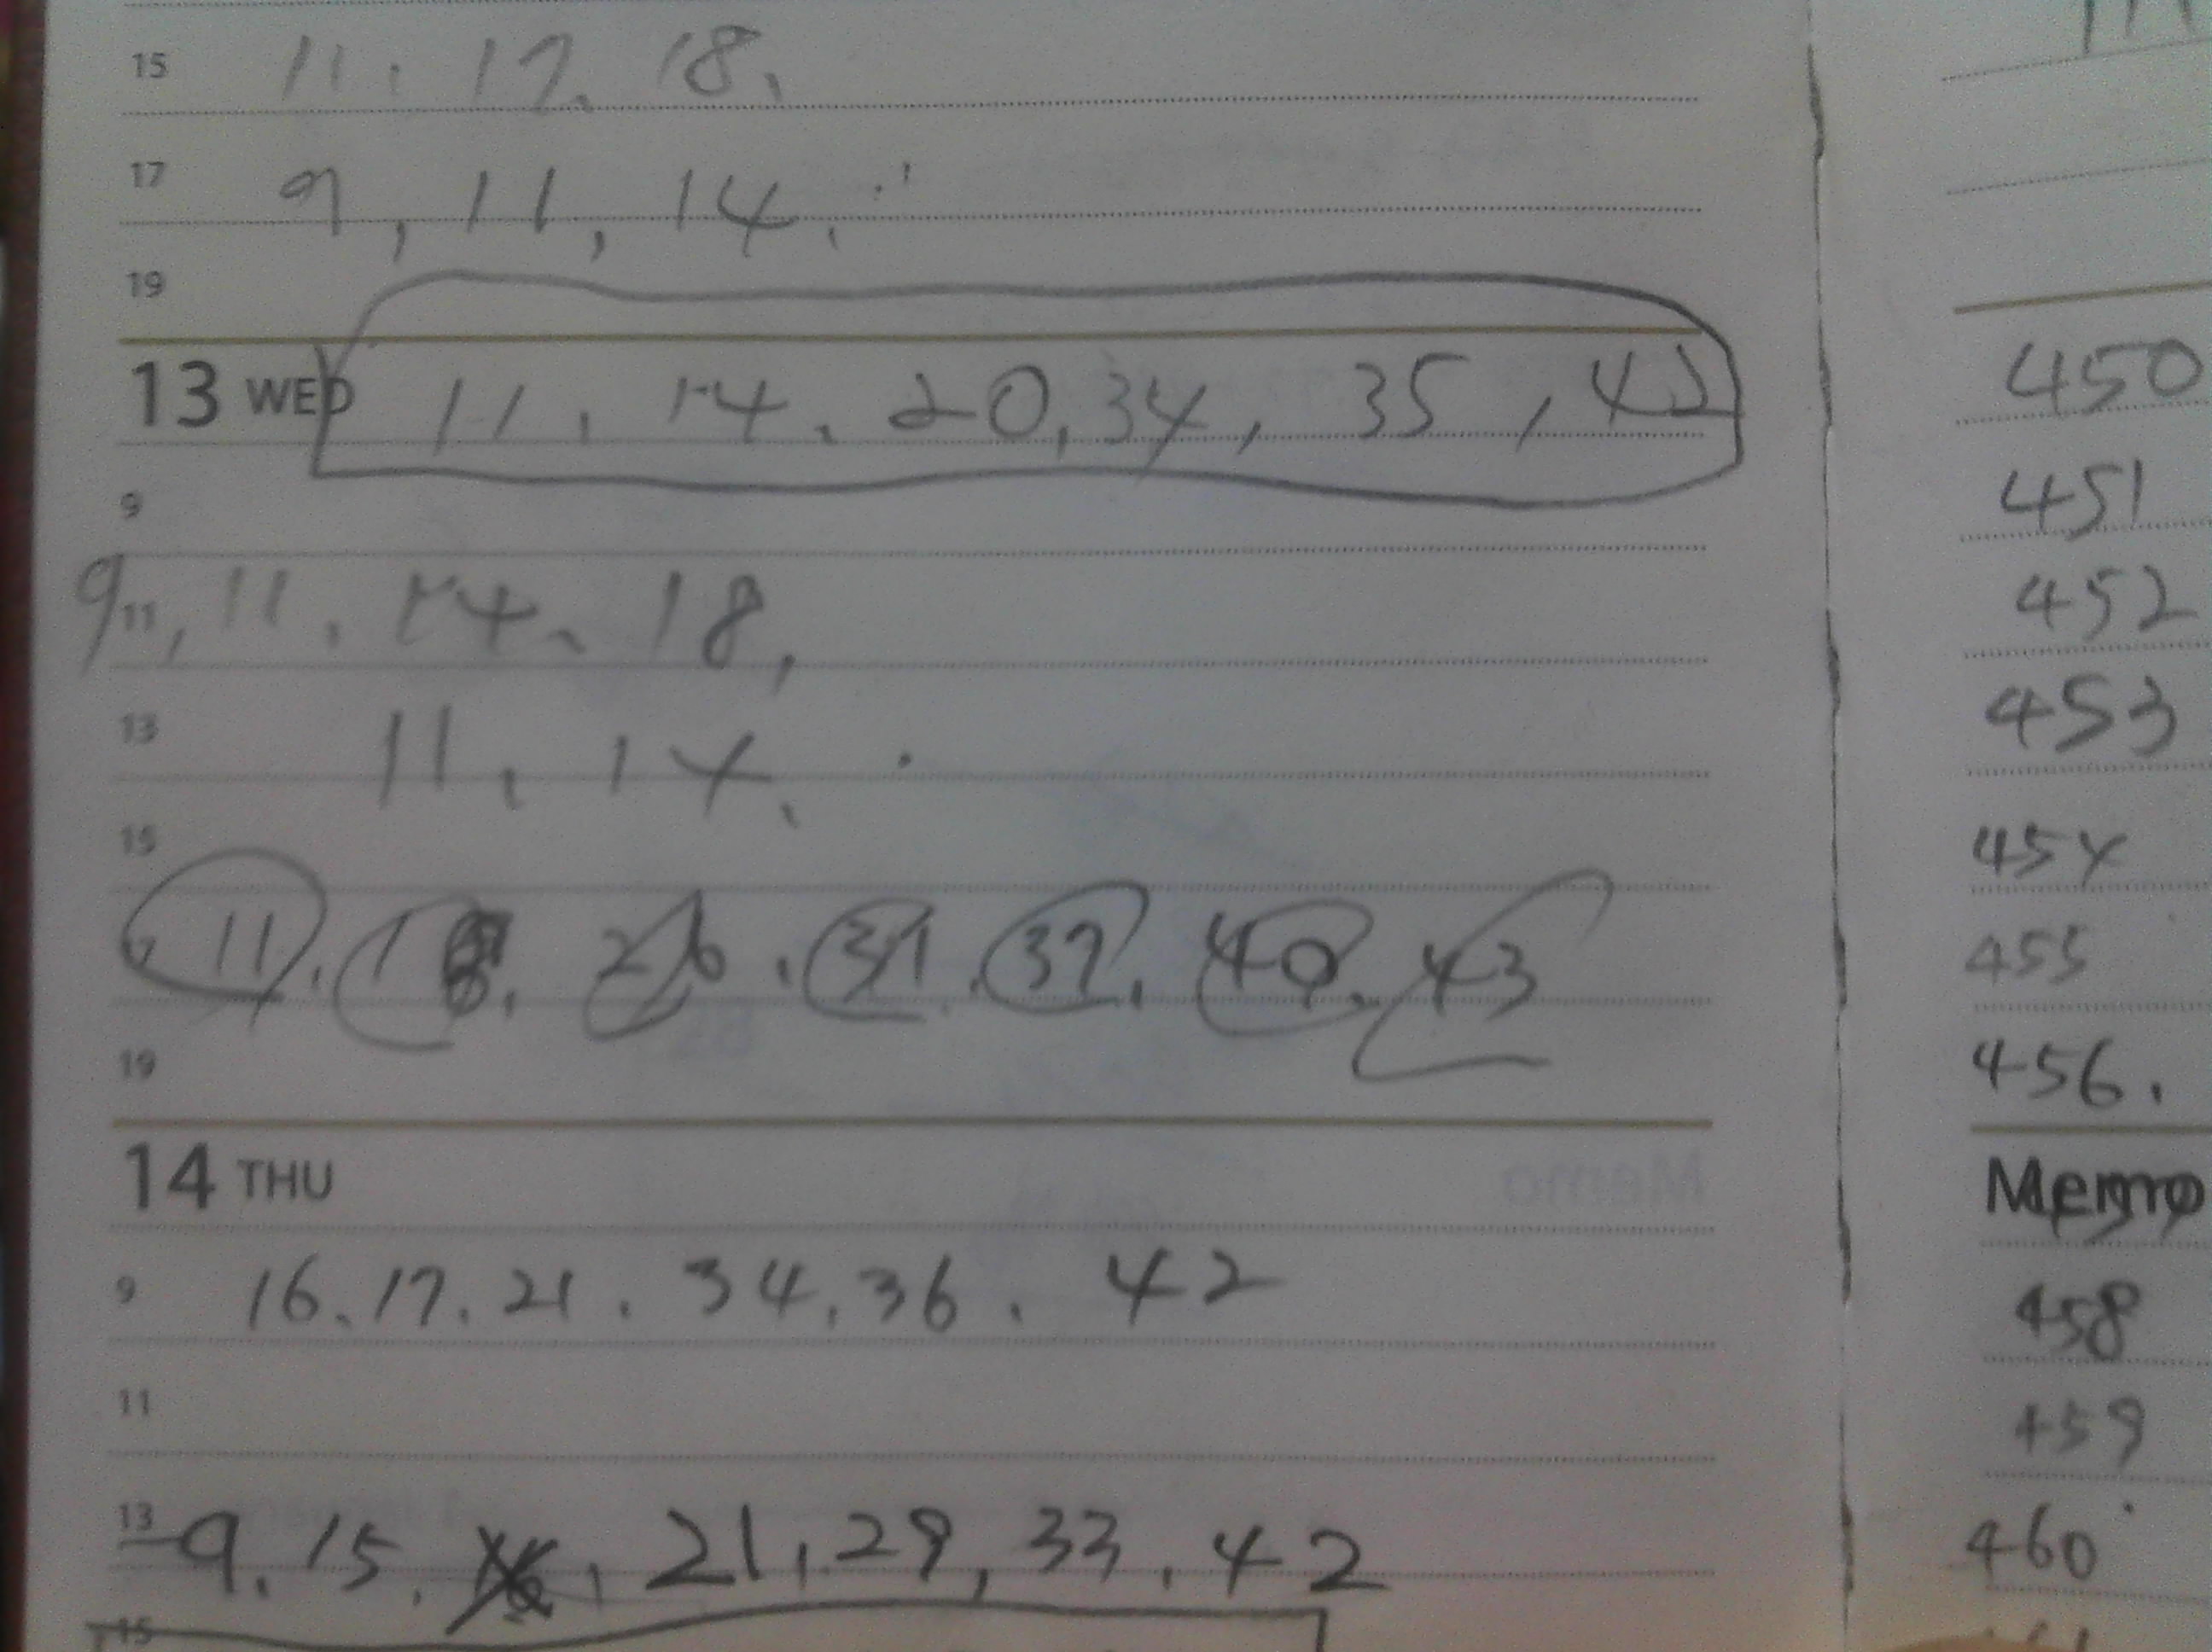 15 11. 17. 18.
17 9, 11, 14.
19
13 WED 11. 14. 20, 34, 35, 42
9
11 9, 11. 14. 18,
13 11, 14.
15
17 11. 18. 26. 31. 37. 40. 43
19
14 THU
9 16. 17. 21. 34. 36. 42
11
13 9. 15. 16, 21, 29, 33, 42
15
450
451
452
453
454
455
456.
Memo
458
459
460